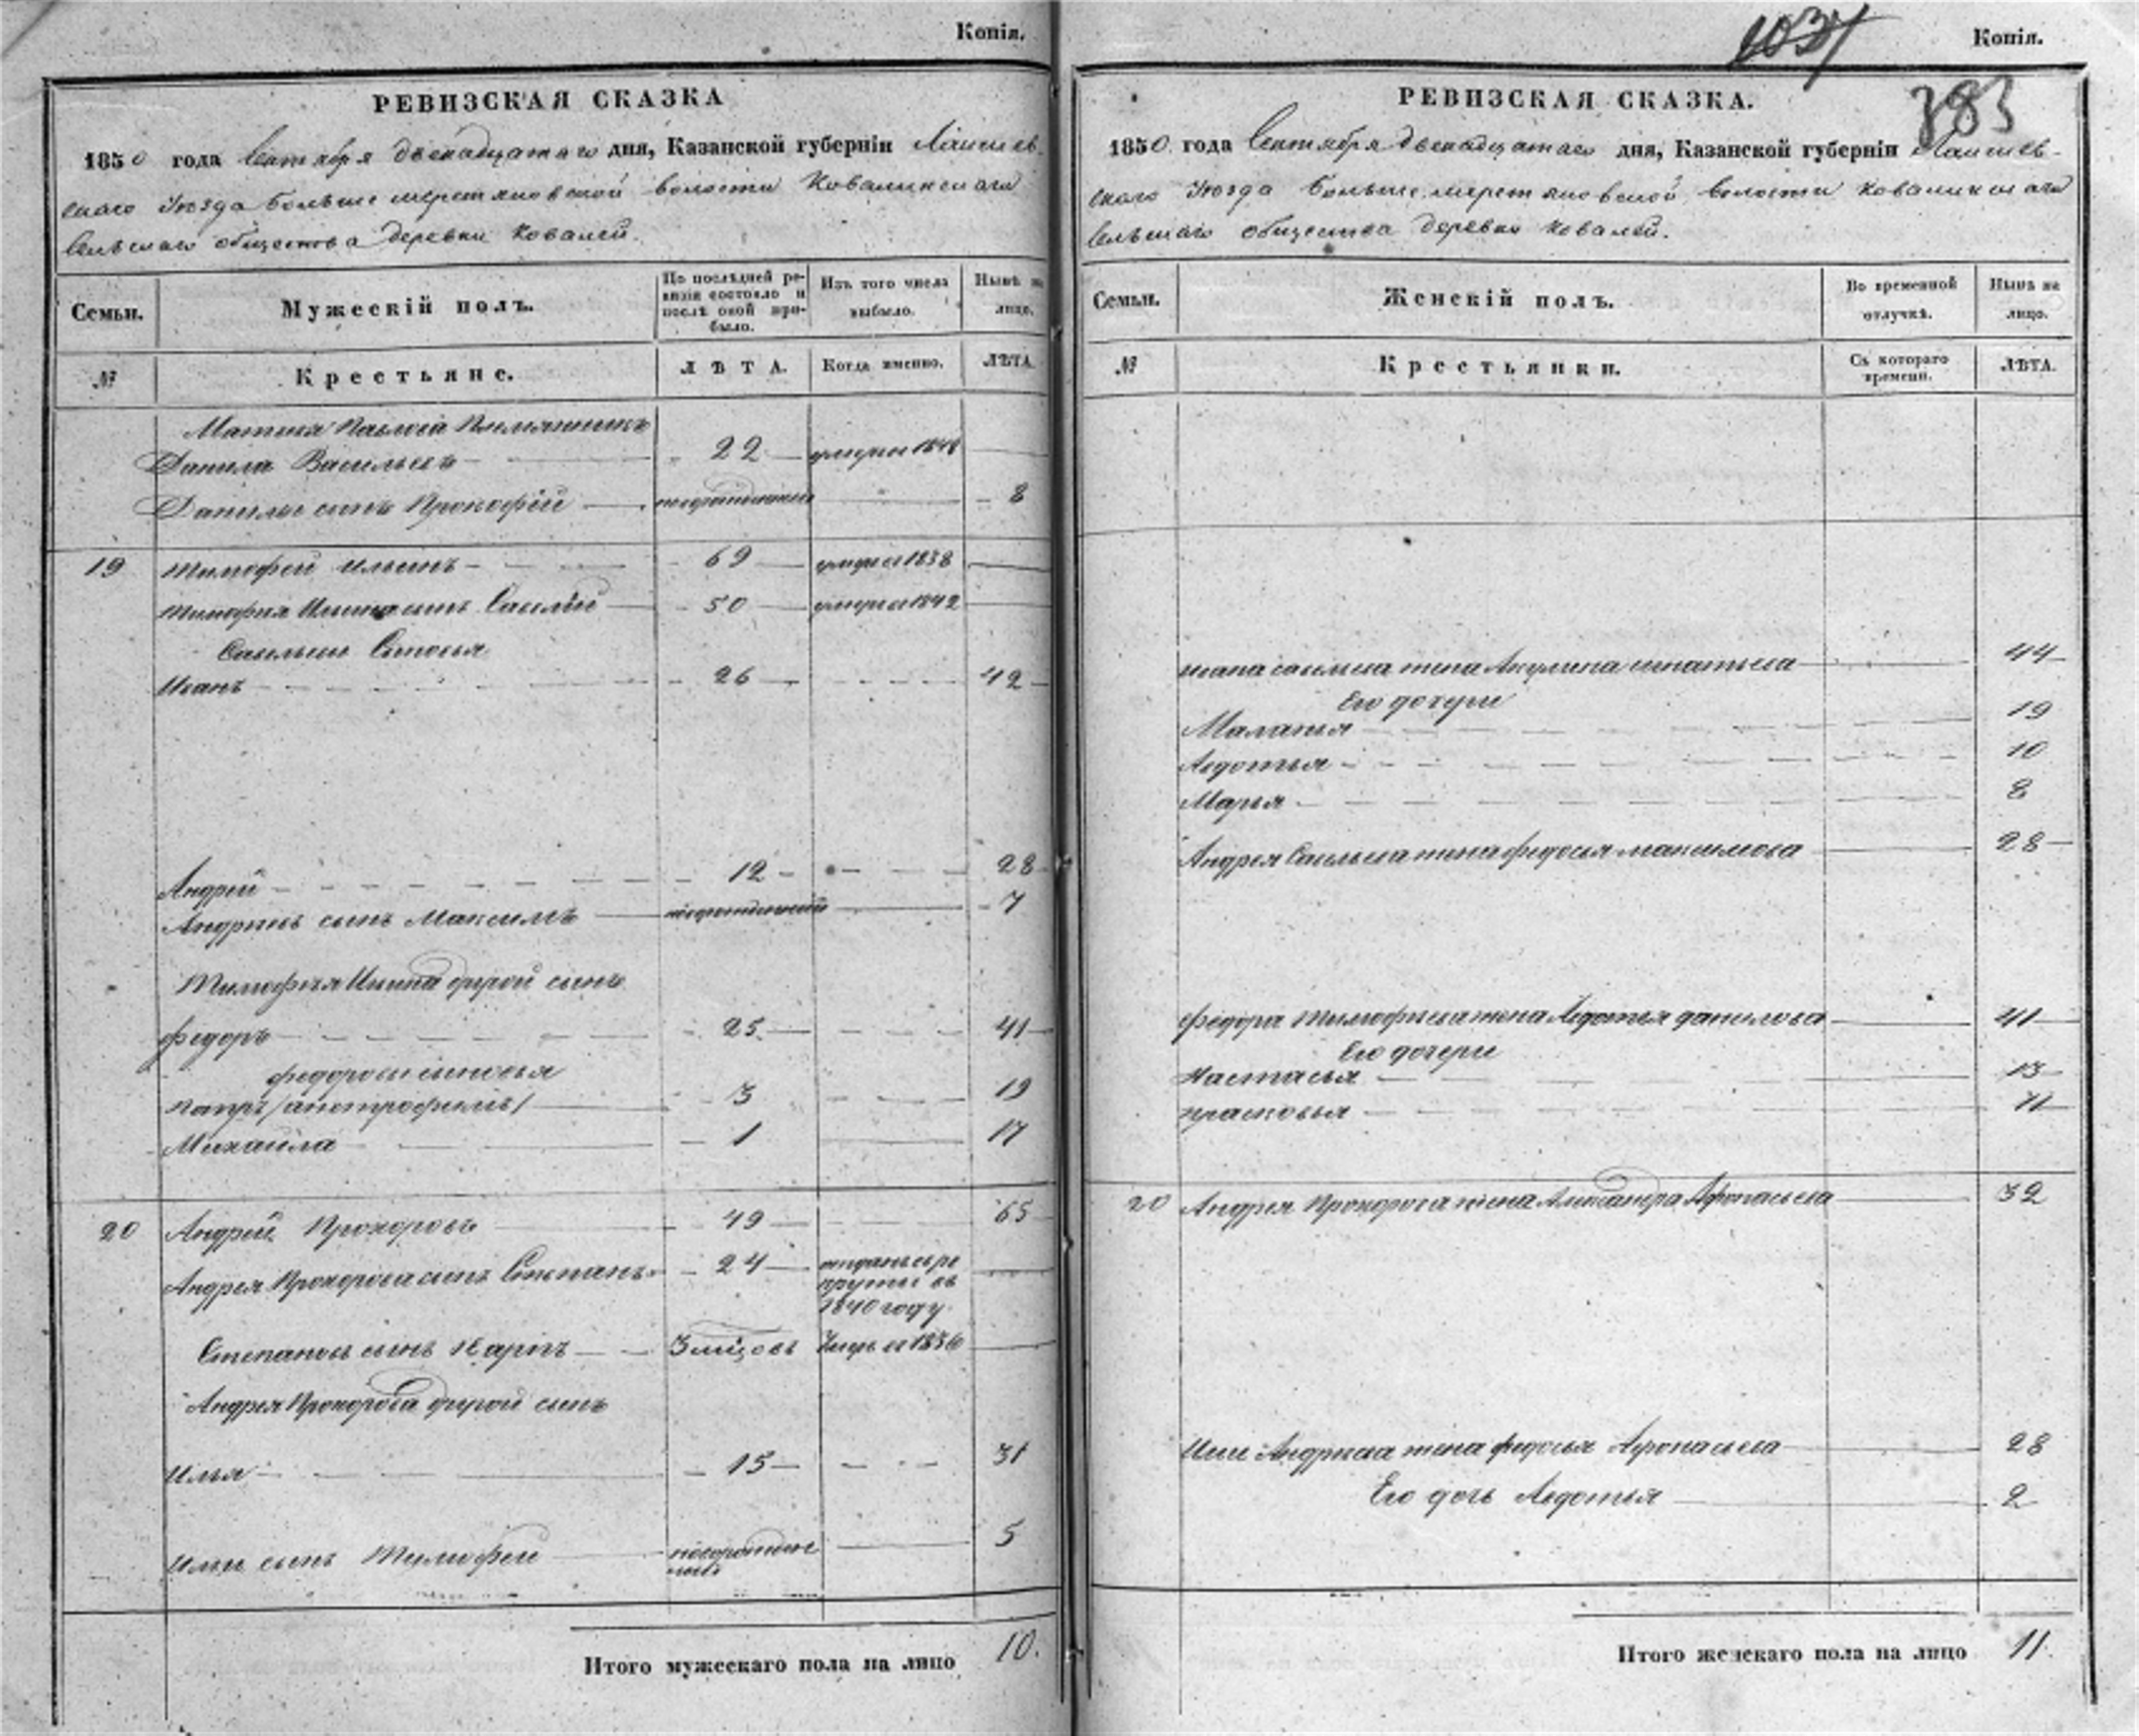 Копія.
РЕВИЗСКАЯ СКАЗКА
1850 года Сентября двенадцатаго дня, Казанской губерніи Лаишев-
скаго Уѣзда Больше волости Ковалинскаго
Сельскаго общества деревни Ковалей.
Семьи.
Мужескій полъ.
По послѣдней ре-
визіи состояло и
послѣ оной при-
было.
Изъ того числа
выбыло.
Нынѣ на
лицо.
№
Крестьяне.
ЛѢТА.
Когда именно.
ЛѢТА.
Данила Васильевъ 22 умеръ 1848
Данилы сынъ Прокофій 8
19 Тимофей Ильинъ 69 умре 1838
Тимофея Ильина сынъ Савелій 50 умре 1842
Савельевы Сыновья
Иванъ 26 42
Андрей 12 28
Андреевъ сынъ Максимъ новорожденный 7
Тимофея Ильина другой сынъ
Федоръ 25 41
Федоровы сыновья
3 19
Михайла 1 17
20 Андрей Прохоровъ 49 65
Андрея Прохорова сынъ Степанъ 24 отданъ въ ре
круты въ
1840 году
Степановъ сынъ Карпъ 1836
Андрея Прохорова другой сынъ
Илья 15 31
Ильи сынъ Тимофей новорожден
ный 5
Итого мужескаго пола на лицо 10.
1037
Копія.
383
РЕВИЗСКАЯ СКАЗКА.
1850 года Сентября двенадцатаго дня, Казанской губерніи Лаишев-
скаго Уѣзда Больше волости Ковалинскаго
Сельскаго общества деревни Ковалей.
Семьи.
Женскій полъ.
Во временной
отлучкѣ.
Нынѣ на
лицо.
№
Крестьянки.
Съ котораго
времени.
ЛѢТА.
Ивана Савельева жена Акулина Игнатьева 44
Его дочери
Маланья 19
Авдотья 10
Марья 8
Андрея Савельева жена Федосья Максимова 28
Федора Тимофеева жена Авдотья Данилова 41
Его дочери
Настасья 13
Прасковья 11
20 Андрея Прохорова жена Александра Афонасьева 52
Ильи Андреева жена Федосья Афонасьева 28
Его дочь Авдотья 2
Итого женскаго пола на лицо 11.